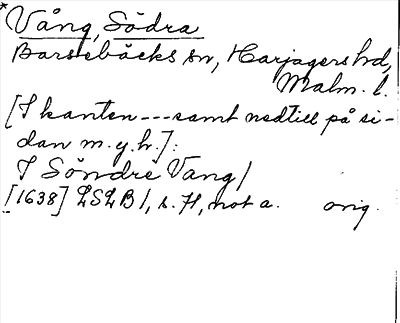 *Vång, Södra
Barsebäcks sn, Harjagers hd,
Malm. l.
[I kanten --- samt nedtill på si-
dan m.y.h.]:
I Söndre Vang/
[1638] LSLB1, s. 71, not a. orig.